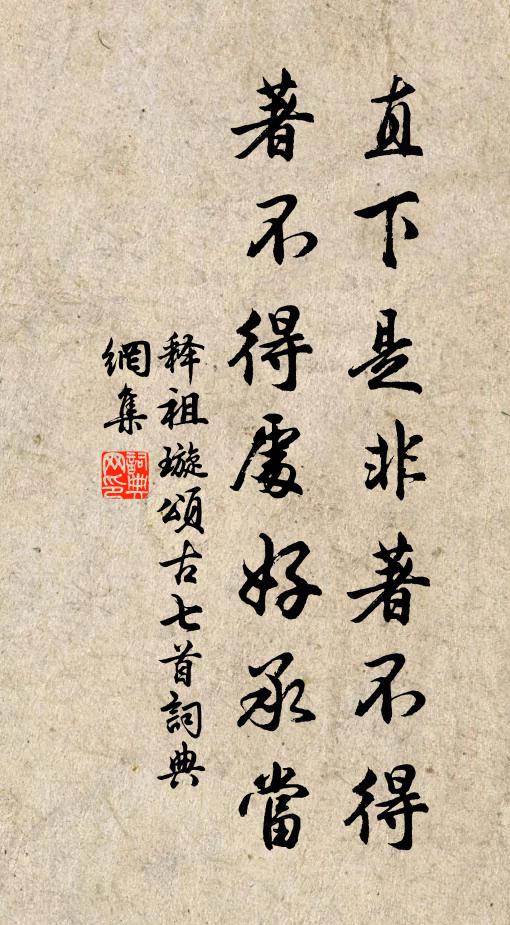 直下是非著不得
著不得處好承當
釋祖璇頌古七首詞典
網集
詞典網印